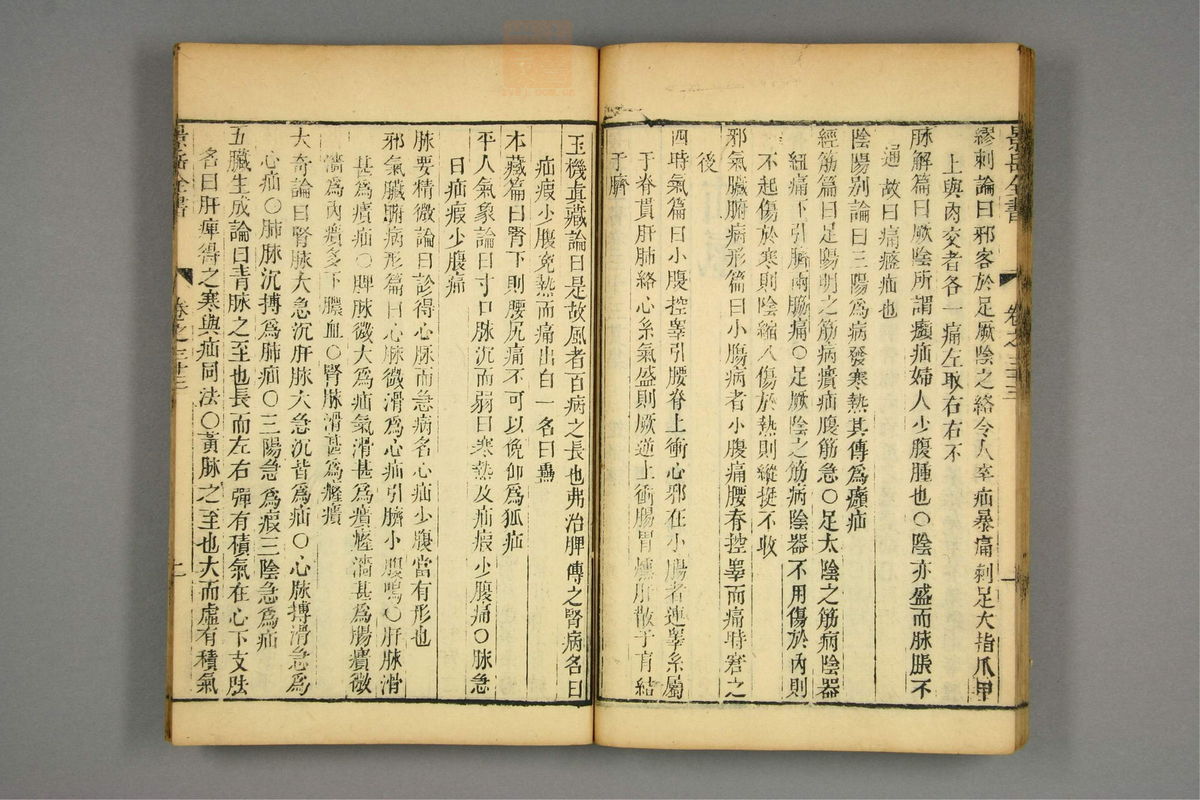 繆刺論曰邪客於足厥陰之絡令人卒疝暴痛刺足大指爪甲
上與肉交者各一痛左取右右不
脉解篇曰厥陰所謂㿗疝婦人少腹腫也〇陰亦盛而脉脹不
通故曰㿗癃疝也
陰陽別論曰三陽為病發寒熱其傳為㿗疝
經筋篇曰足陽明之筋病㿉疝腹筋急〇足太陰之筋病陰器
紐痛下引臍兩脇痛〇足厥陰之筋病陰器不用傷於內則
不起傷於寒則陰縮入傷於熱則縱挺不收
邪氣臟腑病形篇曰小腸病者小腹痛腰脊控睾而痛時窘之
後
四時氣篇曰小腹控睾引腰脊上衝心邪在小腸者連睾系屬
于脊貫肝肺絡心系氣盛則厥逆上衝腸胃燻肝散于肓結
于臍
景岳全書
卷之三十三
一
玉機眞藏論曰是故風者百病之長也弗治脾傳之腎病名曰
疝瘕小腹寃熱而痛出白一名曰蠱
本藏篇曰腎下則腰尻痛不可以俛仰爲狐疝
平人氣象論曰寸口脉沉而弱曰寒熱及疝瘕少腹痛〇脉急
曰疝瘕少腹痛
脉要精微論曰診得心脉而急病名心疝少腹當有形也
邪氣臟腑病形篇曰心脉微滑爲心疝引臍小腹鳴〇肝脉滑
甚爲㿉疝〇脾脉微大爲疝氣滑甚爲㿉癃濇甚爲腸㿉微
濇爲內㿉多下膿血〇腎脉滑甚爲癃㿉
大奇論曰腎脉大急沉肝脉大急沉皆爲疝〇心脉搏滑急爲
心疝〇肺脉沉搏爲肺疝〇三陽急爲瘕三陰急爲疝
五臟生成論曰青脉之至也長而左右彈有積氣在心下支胠
名曰肝痺得之寒與疝同法〇黃脉之至也大而虛有積氣
景岳全書
卷之三十三
二